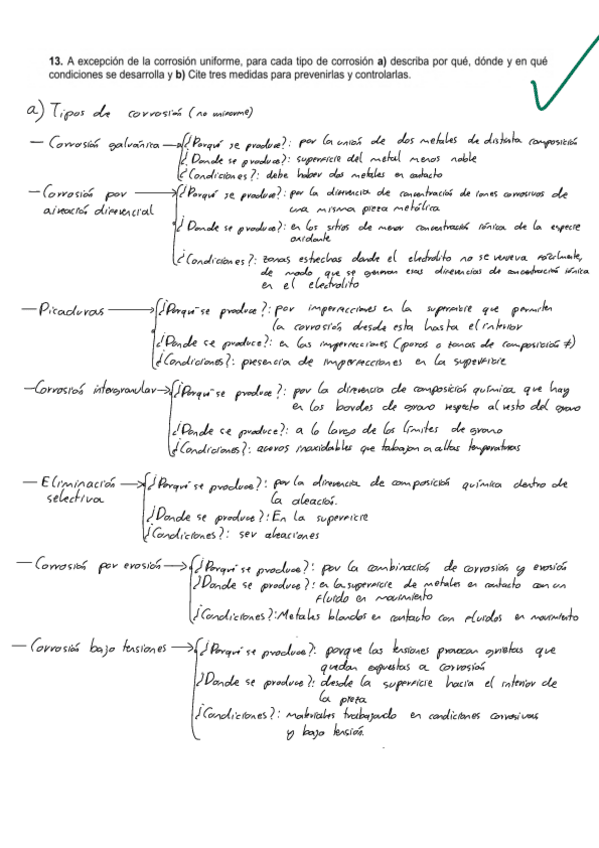 13. A excepción de la corrosión uniforme, para cada tipo de corrosión a) describa por qué, dónde y en qué
condiciones se desarrolla y b) Cite tres medidas para prevenirlas y controlarlas.
a) Tipos de corrosión (no uniforme)
— Corrosión galvánica → ¿Porqué se produce?: por la unión de dos metales de distinta composición
¿Donde se produce?: superficie del metal menos noble
¿Condiciones?: debe haber dos metales en contacto
— Corrosión por → ¿Porqué se produce?: por la diferencia de concentración de iones corrosivos de
aireación diferencial una misma pieza metálica
¿Donde se produce?: en los sitios de menor concentración iónica de la especie
oxidante
¿Condiciones?: zonas estrechas donde el electrolito no se renueva facilmente,
de modo que se generan esas diferencias de concentración iónica
en el electrolito
— Picaduras → ¿Porqué se produce?: por imperfecciones en la superficie que permiten
la corrosión desde esta hasta el interior
¿Donde se produce?: en las imperfecciones (poros o zonas de composición ≠)
¿Condiciones?: presencia de imperfecciones en la superficie
— Corrosión intergranular → ¿Porqué se produce?: por la diferencia de composición química que hay
en los bordes de grano respecto al resto del grano
¿Donde se produce?: a lo largo de los límites de grano
¿Condiciones?: aceros inoxidables que trabajan a altas temperaturas
— Eliminación → ¿Porqué se produce?: por la diferencia de composición química dentro de
selectiva la aleación.
¿Donde se produce?: En la superficie
¿Condiciones?: ser aleaciones
— Corrosión por erosión → ¿Porqué se produce?: por la combinación de corrosión y erosión
¿Donde se produce?: en la superficie de metales en contacto con un
fluido en movimiento
¿Condiciones?: Metales blandos en contacto con fluidos en movimiento
— Corrosión bajo tensiones → ¿Porqué se produce?: porque las tensiones provocan grietas que
quedan expuestas a corrosión
¿Donde se produce?: desde la superficie hacia el interior de
la pieza
¿Condiciones?: materiales trabajando en condiciones corrosivas
y bajo tensión.